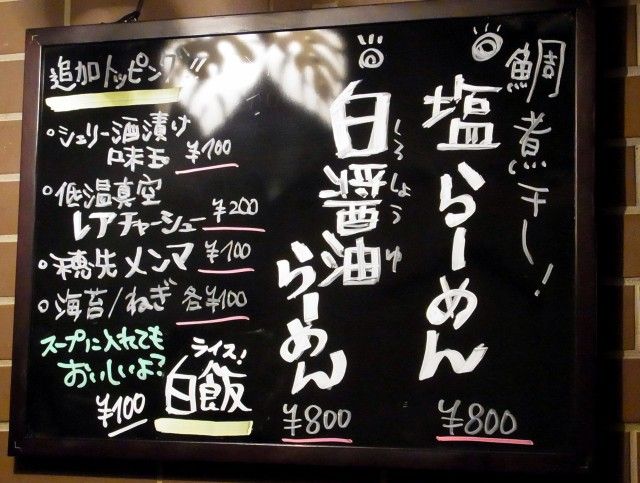 鯛煮干し!
塩らーめん
¥800
白醤油
しろしょうゆ
らーめん
¥800
追加トッピング!!
シェリー酒漬け
味玉 ¥100
低温真空
レアチャーシュー ¥200
穂先メンマ ¥100
海苔/ねぎ 各¥100
スープに入れても
おいしいよ?
ライス!
白飯
¥100